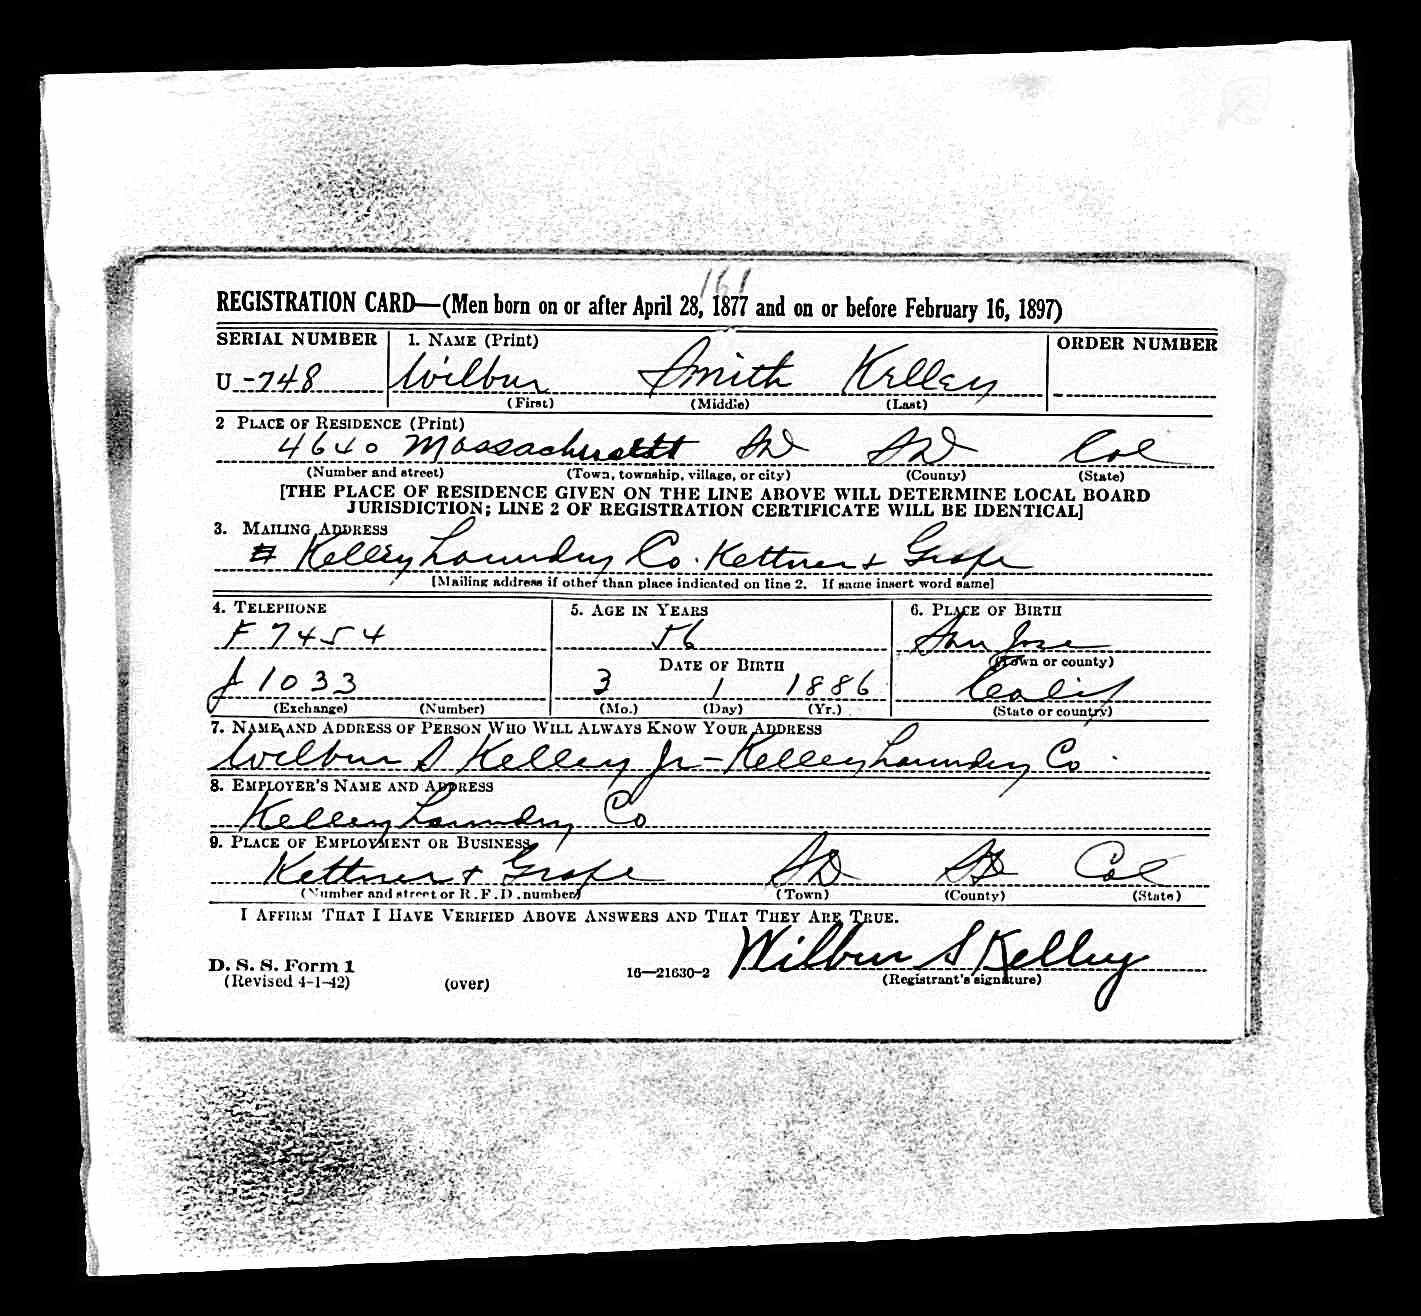 161
REGISTRATION CARD—(Men born on or after April 28, 1877 and on or before February 16, 1897)
SERIAL NUMBER 1. NAME (Print) ORDER NUMBER
U -748 Wilbur Smith Kelley
(First) (Middle) (Last)
2 PLACE OF RESIDENCE (Print)
4640 Massachusett SD SD Cal
(Number and street) (Town, township, village, or city) (County) (State)
[THE PLACE OF RESIDENCE GIVEN ON THE LINE ABOVE WILL DETERMINE LOCAL BOARD
JURISDICTION; LINE 2 OF REGISTRATION CERTIFICATE WILL BE IDENTICAL]
3. MAILING ADDRESS
Kelley Laundry Co. Kettner + Grape
[Mailing address if other than place indicated on line 2. If same insert word same]
4. TELEPHONE 5. AGE IN YEARS 6. PLACE OF BIRTH
F 7454 56 San Jose
DATE OF BIRTH (Town or county)
J 1033 3 1 1886 Calif
(Exchange) (Number) (Mo.) (Day) (Yr.) (State or country)
7. NAME AND ADDRESS OF PERSON WHO WILL ALWAYS KNOW YOUR ADDRESS
Wilbur S Kelley Jr - Kelley Laundry Co.
8. EMPLOYER'S NAME AND ADDRESS
Kelley Laundry Co
9. PLACE OF EMPLOYMENT OR BUSINESS
Kettner + Grape SD SD Cal
(Number and street or R. F. D. number) (Town) (County) (State)
I AFFIRM THAT I HAVE VERIFIED ABOVE ANSWERS AND THAT THEY ARE TRUE.
Wilbur S Kelley
D. S. S. Form 1
(Revised 4-1-42) (over) 16—21630-2 (Registrant's signature)